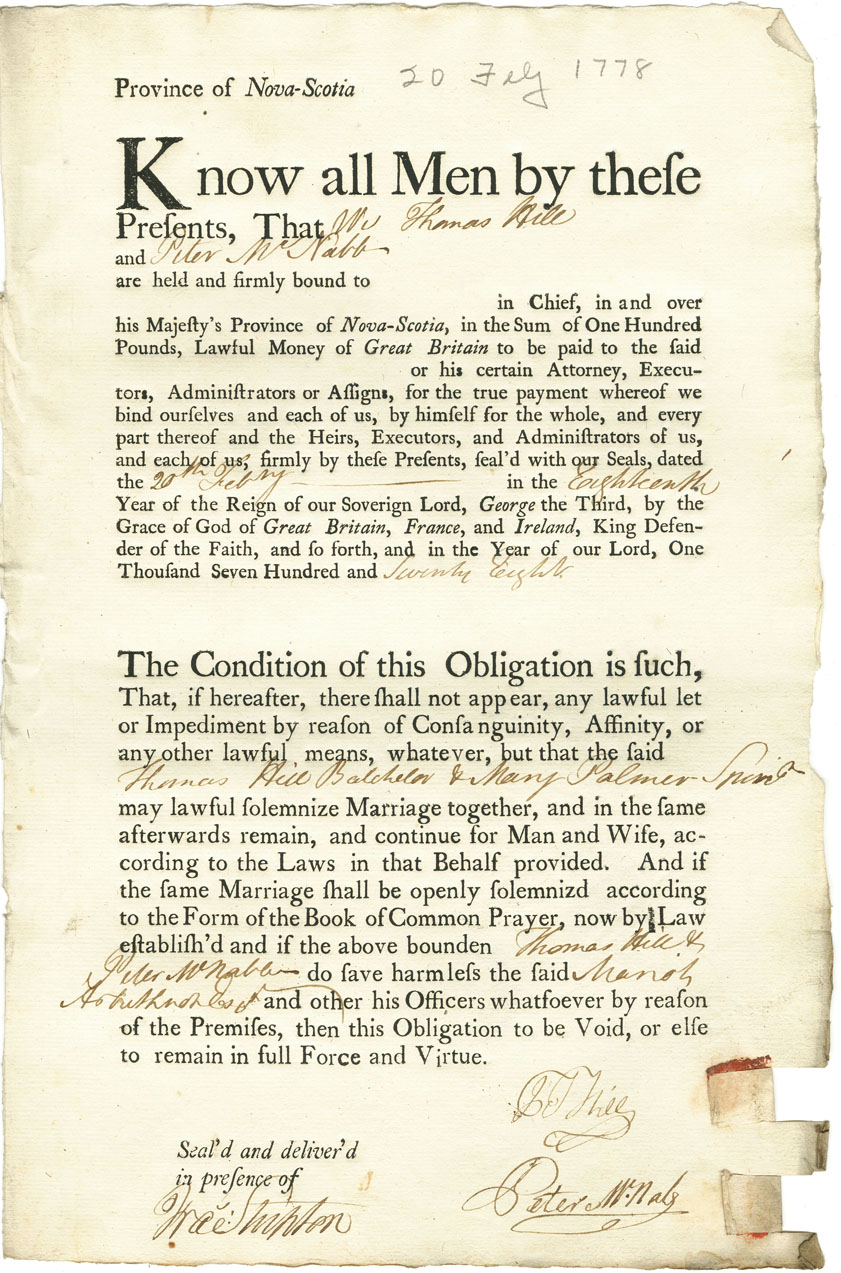 Province of Nova-Scotia 20 Feby 1778
Know all Men by theſe
Preſents, That We Thomas Hill
and Peter McNabb
are held and firmly bound to
in Chief, in and over
his Majeſty's Province of Nova-Scotia, in the Sum of One Hundred
Pounds, Lawful Money of Great Britain to be paid to the ſaid
or his certain Attorney, Execu-
tors, Adminiſtrators or Aſſigns, for the true payment whereof we
bind ourſelves and each of us, by himſelf for the whole, and every
part thereof and the Heirs, Executors, and Adminiſtrators of us,
and each of us, firmly by theſe Preſents, ſeal'd with our Seals, dated
the 20th Febry in the Eighteenth
Year of the Reign of our Soverign Lord, George the Third, by the
Grace of God of Great Britain, France, and Ireland, King Defen-
der of the Faith, and ſo forth, and in the Year of our Lord, One
Thouſand Seven Hundred and Seventy Eight.
The Condition of this Obligation is ſuch,
That, if hereafter, there ſhall not appear, any lawful let
or Impediment by reaſon of Conſanguinity, Affinity, or
any other lawful means, whatever, but that the ſaid
Thomas Hill Batchelor & Mary Palmer Spinsr
may lawful ſolemnize Marriage together, and in the ſame
afterwards remain, and continue for Man and Wife, ac-
cording to the Laws in that Behalf provided. And if
the ſame Marriage ſhall be openly ſolemnizd according
to the Form of the Book of Common Prayer, now by Law
eſtabliſh'd and if the above bounden Thomas Hill &
Peter McNabb do ſave harmleſs the ſaid Mariot
Arbuthnot Esqr and other his Officers whatſoever by reaſon
of the Premiſes, then this Obligation to be Void, or elſe
to remain in full Force and Virtue.
Hill
Seal'd and deliver'd
in preſence of
Peter McNab
Shipton